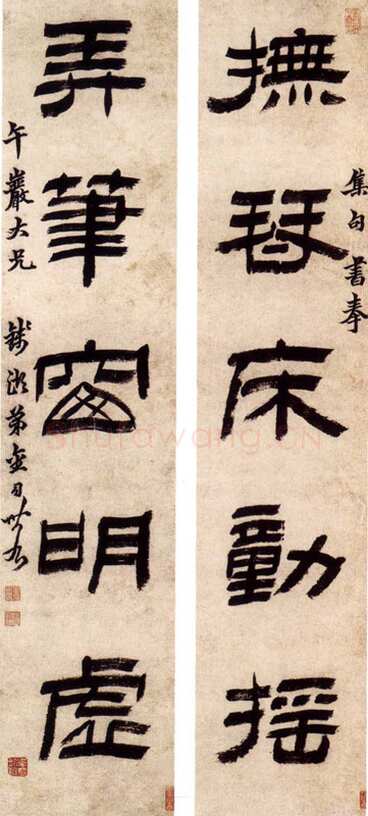 集句書奉
撫琴床動搖
弄筆窗明虛
午巖大兄
弟金
Shufawang.CN